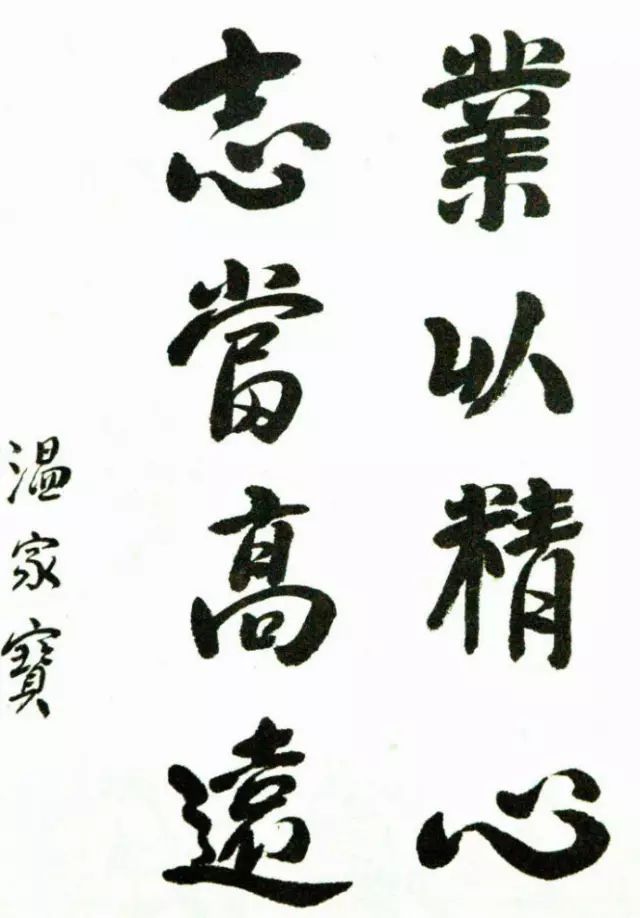 業以精心
志當高遠
温家寶